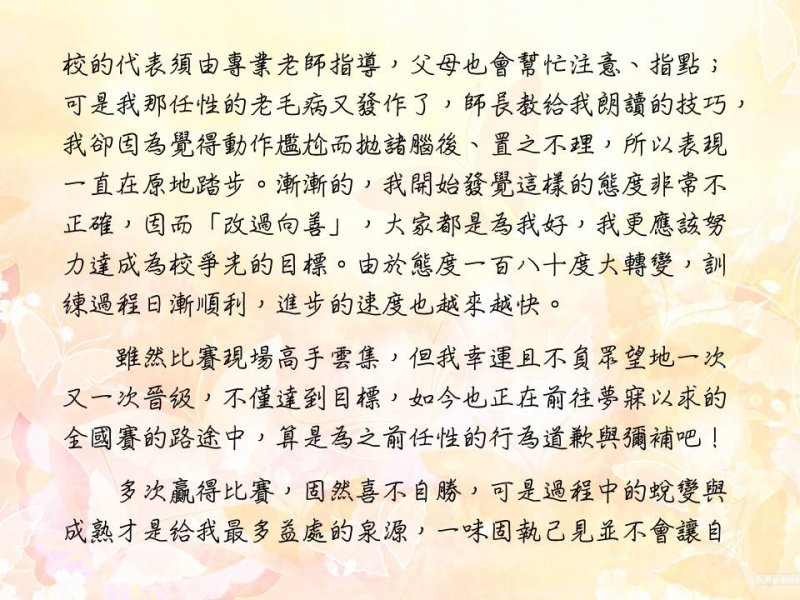 校的代表須由專業老師指導，父母也會幫忙注意、指點；
可是我那任性的老毛病又發作了，師長教給我朗讀的技巧，
我卻因為覺得動作尷尬而拋諸腦後、置之不理，所以表現
一直在原地踏步。漸漸的，我開始發覺這樣的態度非常不
正確，因而「改過向善」，大家都是為我好，我更應該努
力達成為校爭光的目標。由於態度一百八十度大轉變，訓
練過程日漸順利，進步的速度也越來越快。
雖然比賽現場高手雲集，但我幸運且不負眾望地一次
又一次晉級，不僅達到目標，如今也正在前往夢寐以求的
全國賽的路途中，算是為之前任性的行為道歉與彌補吧！
多次贏得比賽，固然喜不自勝，可是過程中的蛻變與
成熟才是給我最多益處的泉源，一味固執己見並不會讓自